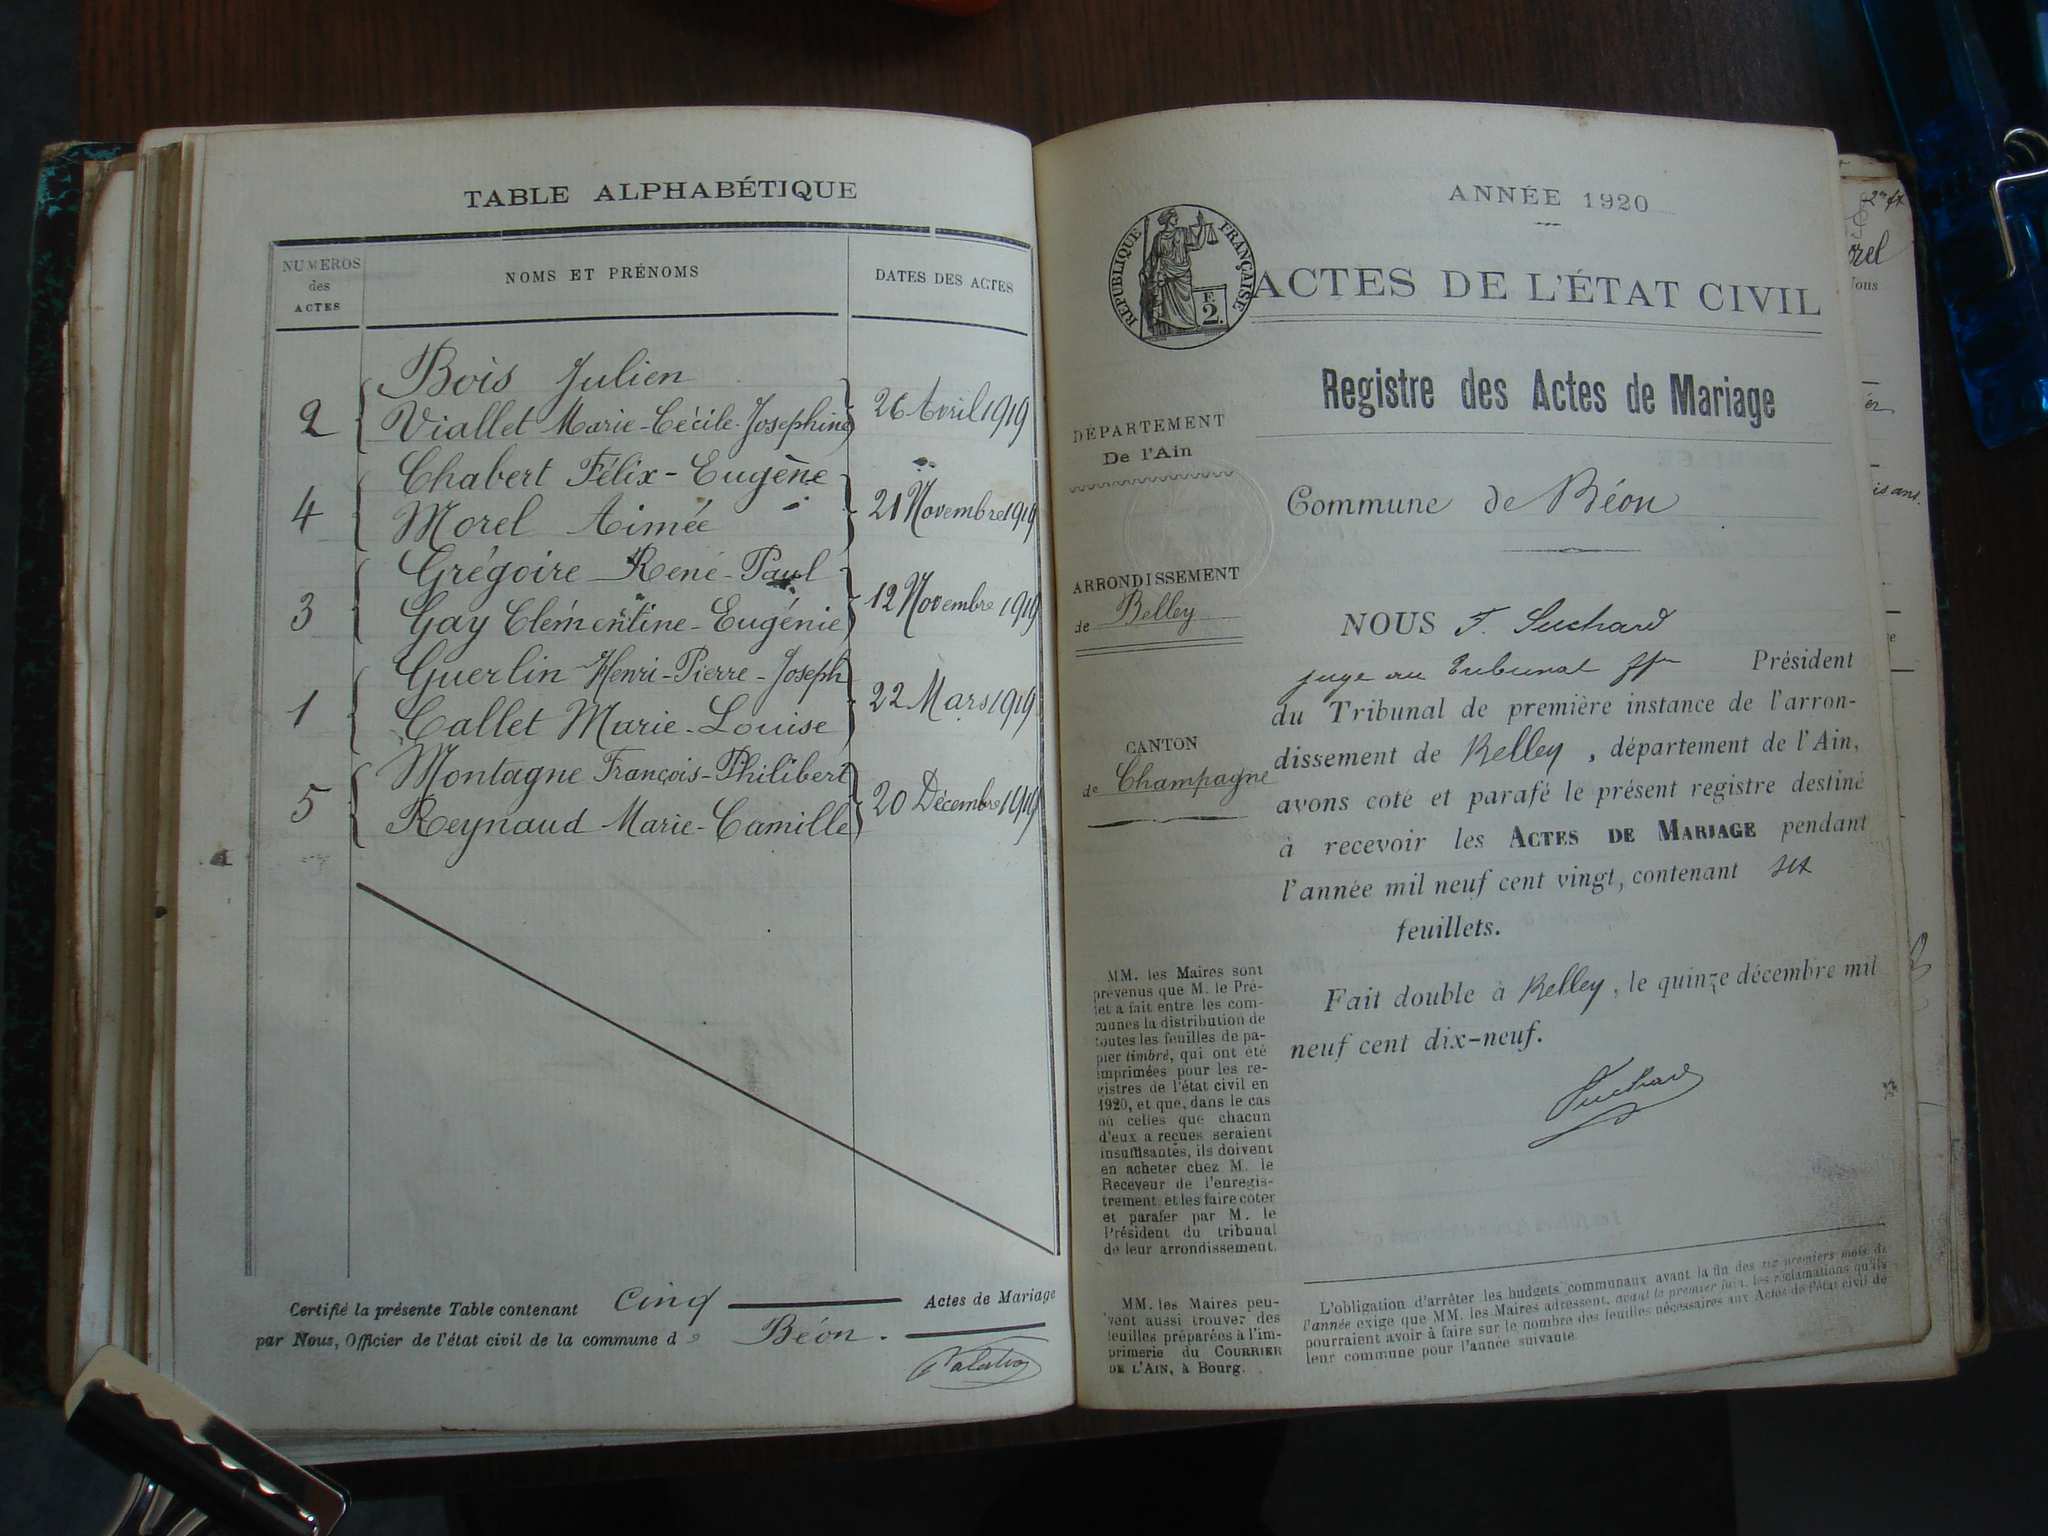 TABLE ALPHABÉTIQUE
NUMEROS
des
ACTES
NOMS ET PRÉNOMS
DATES DES ACTES
Bois Julien
2 Viallet Marie-Cécile-Josephine 26 Avril 1919
Chabert Félix-Eugène
4 Morel Aimée 21 Novembre 1919
Grégoire René-Paul
3 Gay Clémentine-Eugénie 12 Novembre 1919
Guerlin Henri-Pierre-Joseph
1 Callet Marie-Louise 22 Mars 1919
Montagne François-Philibert
5 Reynaud Marie-Camille 20 Décembre 1919
Certifié la présente Table contenant Cinq Actes de Mariage
par Nous, Officier de l'état civil de la commune de Béon.
ANNÉE 1920
RÉPUBLIQUE FRANÇAISE
F.
2.
ACTES DE L'ÉTAT CIVIL
Registre des Actes de Mariage
DÉPARTEMENT
De l'Ain
Commune de Béon
ARRONDISSEMENT
de Belley
CANTON
de Champagne
NOUS F. Suchard
juge au Tribunal ffon Président
du Tribunal de première instance de l'arron-
dissement de Belley, département de l'Ain,
avons coté et parafé le présent registre destiné
à recevoir les ACTES DE MARIAGE pendant
l'année mil neuf cent vingt, contenant six
feuillets.
Fait double à Belley, le quinze décembre mil
neuf cent dix-neuf.
Suchard
MM. les Maires sont
prévenus que M. le Pré-
fet a fait entre les com-
munes la distribution de
toutes les feuilles de pa-
pier timbré, qui ont été
imprimées pour les re-
gistres de l'état civil en
1920, et que, dans le cas
où celles que chacun
d'eux a reçues seraient
insuffisantes, ils doivent
en acheter chez M. le
Receveur de l'enregis-
trement et les faire coter
et parafer par M. le
Président du tribunal
de leur arrondissement.
MM. les Maires peu-
vent aussi trouver des
feuilles préparées à l'im-
primerie du COURRIER
DE L'AIN, à Bourg.
L'obligation d'arrêter les budgets communaux avant la fin des six premiers mois de
l'année exige que MM. les Maires adressent, avant le premier juin, les réclamations qu'ils
pourraient avoir à faire sur le nombre des feuilles nécessaires aux Actes de l'état civil de
leur commune pour l'année suivante.